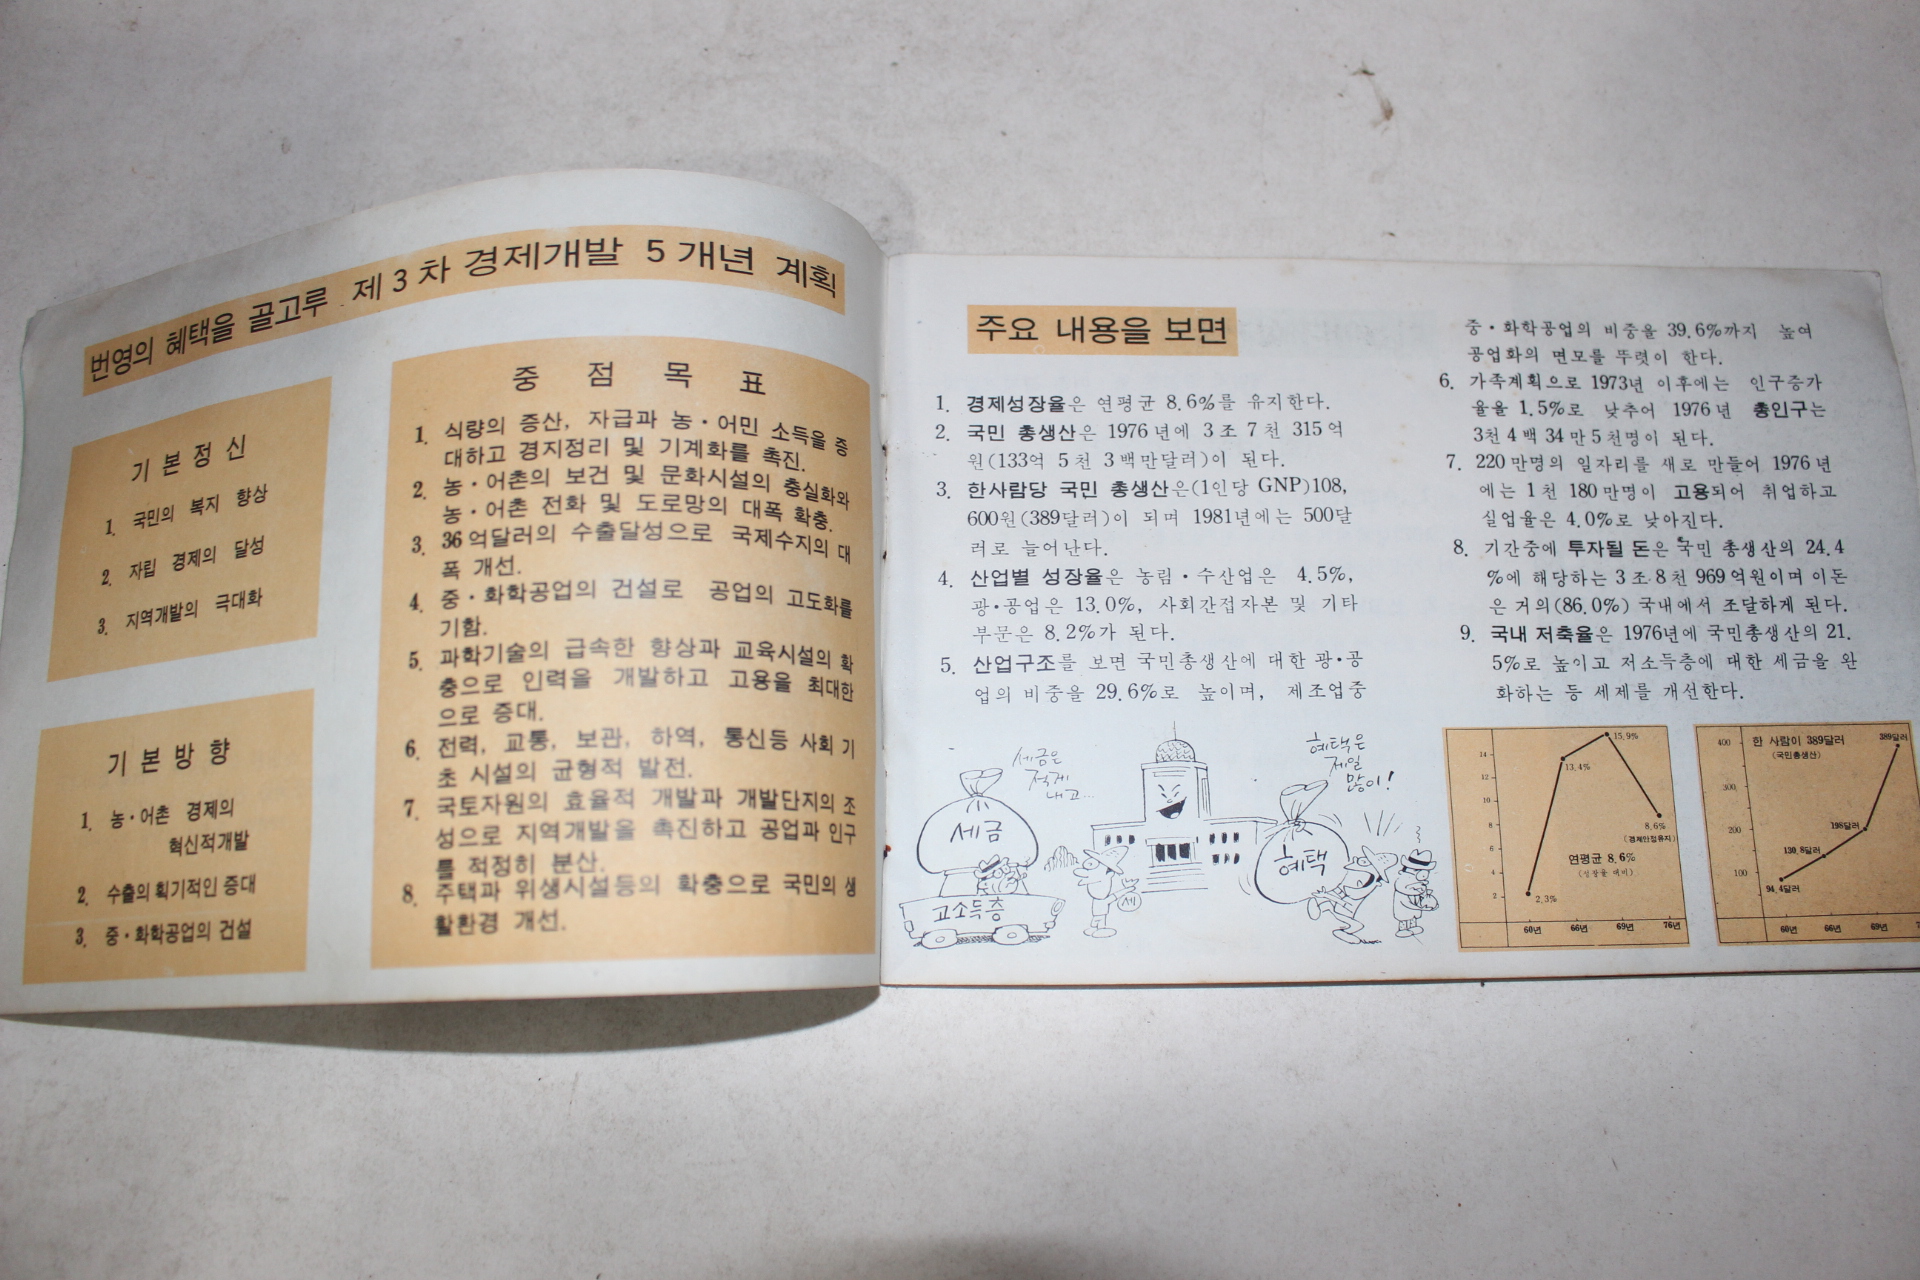 번영의 혜택을 골고루 제 3 차 경제개발 5 개년 계획
기 본 정 신
1. 국민의 복지 향상
2. 자립 경제의 달성
3. 지역개발의 극대화
기 본 방 향
1. 농·어촌 경제의
혁신적개발
2. 수출의 획기적인 증대
3. 중·화학공업의 건설
중 점 목 표
1. 식량의 증산, 자급과 농·어민 소득을 증
대하고 경지정리 및 기계화를 촉진.
2. 농·어촌의 보건 및 문화시설의 충실화와
농·어촌 전화 및 도로망의 대폭 확충.
3. 36억달러의 수출달성으로 국제수지의 대
폭 개선.
4. 중·화학공업의 건설로 공업의 고도화를
기함.
5. 과학기술의 급속한 향상과 교육시설의 확
충으로 인력을 개발하고 고용을 최대한
으로 증대.
6. 전력, 교통, 보관, 하역, 통신등 사회 기
초 시설의 균형적 발전.
7. 국토자원의 효율적 개발과 개발단지의 조
성으로 지역개발을 촉진하고 공업과 인구
를 적정히 분산.
8. 주택과 위생시설등의 확충으로 국민의 생
활환경 개선.
주요 내용을 보면
1. 경제성장율은 연평균 8.6%를 유지한다.
2. 국민 총생산은 1976년에 3조 7천 315억
원(133억 5천 3백만달러)이 된다.
3. 한사람당 국민 총생산은(1인당 GNP)108,
600원(389달러)이 되며 1981년에는 500달
러로 늘어난다.
4. 산업별 성장율은 농림·수산업은 4.5%,
광·공업은 13.0%, 사회간접자본 및 기타
부문은 8.2%가 된다.
5. 산업구조를 보면 국민총생산에 대한 광·공
업의 비중을 29.6%로 높이며, 제조업중
중·화학공업의 비중을 39.6%까지 높여
공업화의 면모를 뚜렷이 한다.
6. 가족계획으로 1973년 이후에는 인구증가
율을 1.5%로 낮추어 1976년 총인구는
3천 4백 34만 5천명이 된다.
7. 220만명의 일자리를 새로 만들어 1976년
에는 1천 180만명이 고용되어 취업하고
실업율은 4.0%로 낮아진다.
8. 기간중에 투자될 돈은 국민 총생산의 24.4
%에 해당하는 3조 8천 969억원이며 이돈
은 거의(86.0%) 국내에서 조달하게 된다.
9. 국내 저축율은 1976년에 국민총생산의 21.
5%로 높이고 저소득층에 대한 세금을 완
화하는 등 세제를 개선한다.
세금은
적게
내고...
세금
고소득층
세
혜택은
제일
많이!
혜택
14
12
10
8
6
4
2
15.9%
13.4%
8.6%
(경제안정유지)
연평균 8.6%
(성장율 대비)
2.3%
60년 66년 69년 76년
400
300
200
100
한 사람이 389달러
(국민총생산)
389달러
198달러
130.8달러
94.4달러
60년 66년 69년 7